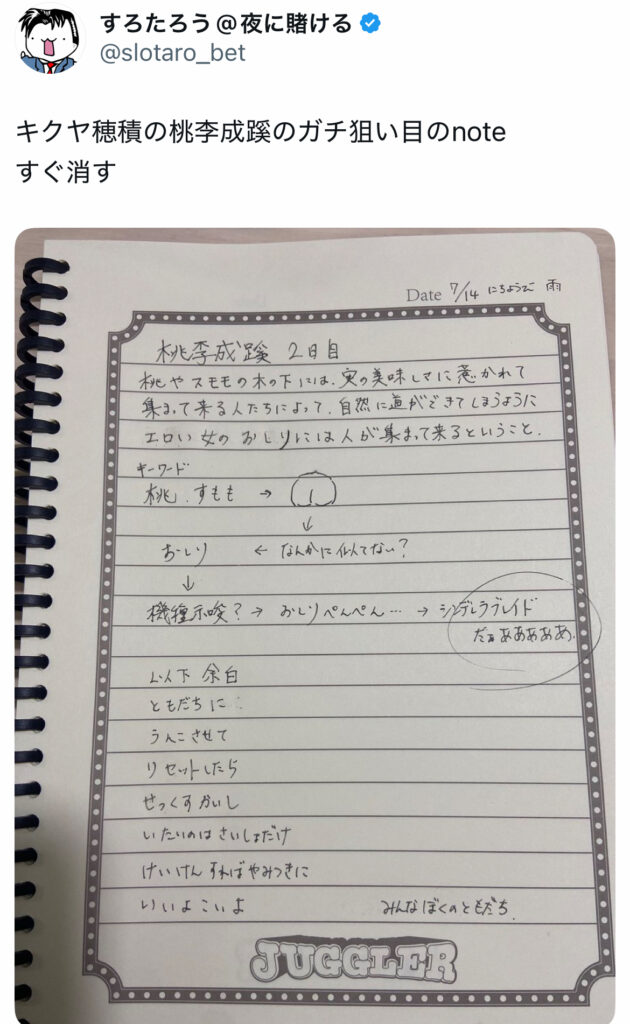 すろたろう@夜に賭ける
@slotaro_bet
キクヤ穂積の桃李成蹊のガチ狙い目のnote
すぐ消す
Date 7/14 にちようび 雨
桃李成蹊 2日目
桃やスモモの木の下には、実の美味しさに惹かれて
集まって来る人たちによって、自然に道ができてしまうように
エロい女のおしりには人が集まって来るということ.
キーワード
桃.すもも →
↓
おしり ← なんかに似てない?
↓
機種示唆? → おしりぺんぺん… → シンデレラブレイド
だぁああああああ.
以下 余白
ともだちに
うんこさせて
リセットしたら
せっくすかいし
いたいのはさいしょだけ
けいけんすればやみつきに
いいよこいよ みんなぼくのともだち.
JUGGLER